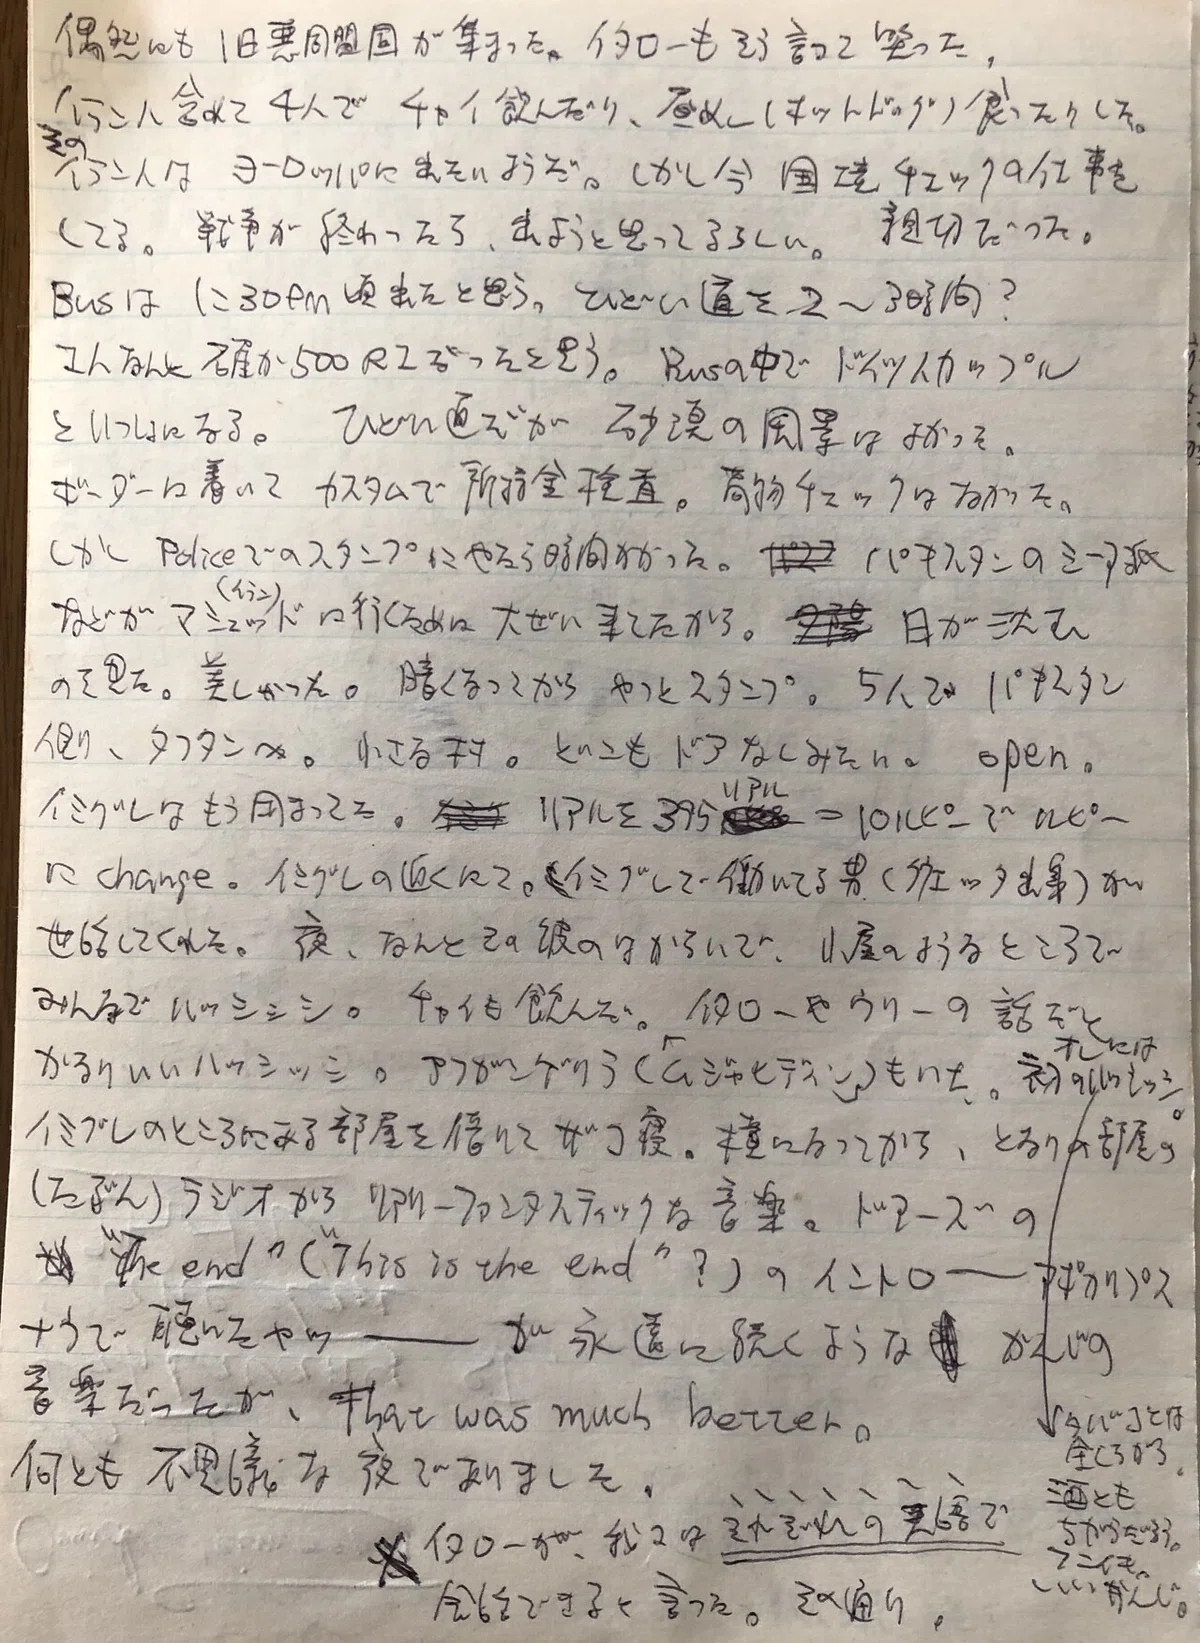 偶然にも旧悪同盟国が集まった。イタローもそう言って笑った。
イラン人含めて4人でチャイ飲んだり、昼めし(ホットドッグ)食ったりした。
そのイラン人はヨーロッパに出たいようだ。しかし今国境チェックの仕事を
してる。戦争が終わったら、出ようと思ってるらしい。親切だった。
Busは12:30pm頃出たと思う。ひどい道を2〜3時間?
こんなんと確か500RIだったと思う。Busの中でドイツ人カップル
といっしょになる。ひどい道だが砂漠の風景はよかった。
ボーダーに着いてカスタムで所持金検査。荷物チェックはなかった。
しかしPoliceでのスタンプにやたら時間かかった。パキスタンのシーア派
などがマシュッド(イラン)に行くために大ぜい来てたから。日が沈む
のを見た。美しかった。暗くなってからやっとスタンプ。5人でパキスタン
側、タフタンへ。小さな村。どこもドアなしみたい。open。
イミグレはもう閉まってた。リアルを395リアル=10ルピーでルピー
にchange。イミグレの近くにて。イミグレで働いてる男(クエッタ出身)が
世話してくれた。夜、なんとその彼のはからいで、小屋のようなところで
みんなでハッシシ。チャイも飲んだ。イタローやウリーの話だと
かなりいいハッシッシ。アフガンゲリラ(「ムジャヒディン」)もいた。オレには初のハッシッシ。
イミグレのところにある部屋を借りてザコ寝。横になってから、となりの部屋の
(たぶん)ラジオからリアリーファンタスティックな音楽。ドアーズの
"The end"("This is the end"?)のイントロ——アポカリプス
ナウで聴いたヤツ——が永遠に続くようなかんじの
音楽だったが、that was much better。
何とも不思議な夜でありました。
タバコとは
全くちがう。
酒とも
ちがうだろう。
マニも。
いいかんじ。
イタローが、我々はそれぞれの英語で
会話できると言った。その通り。